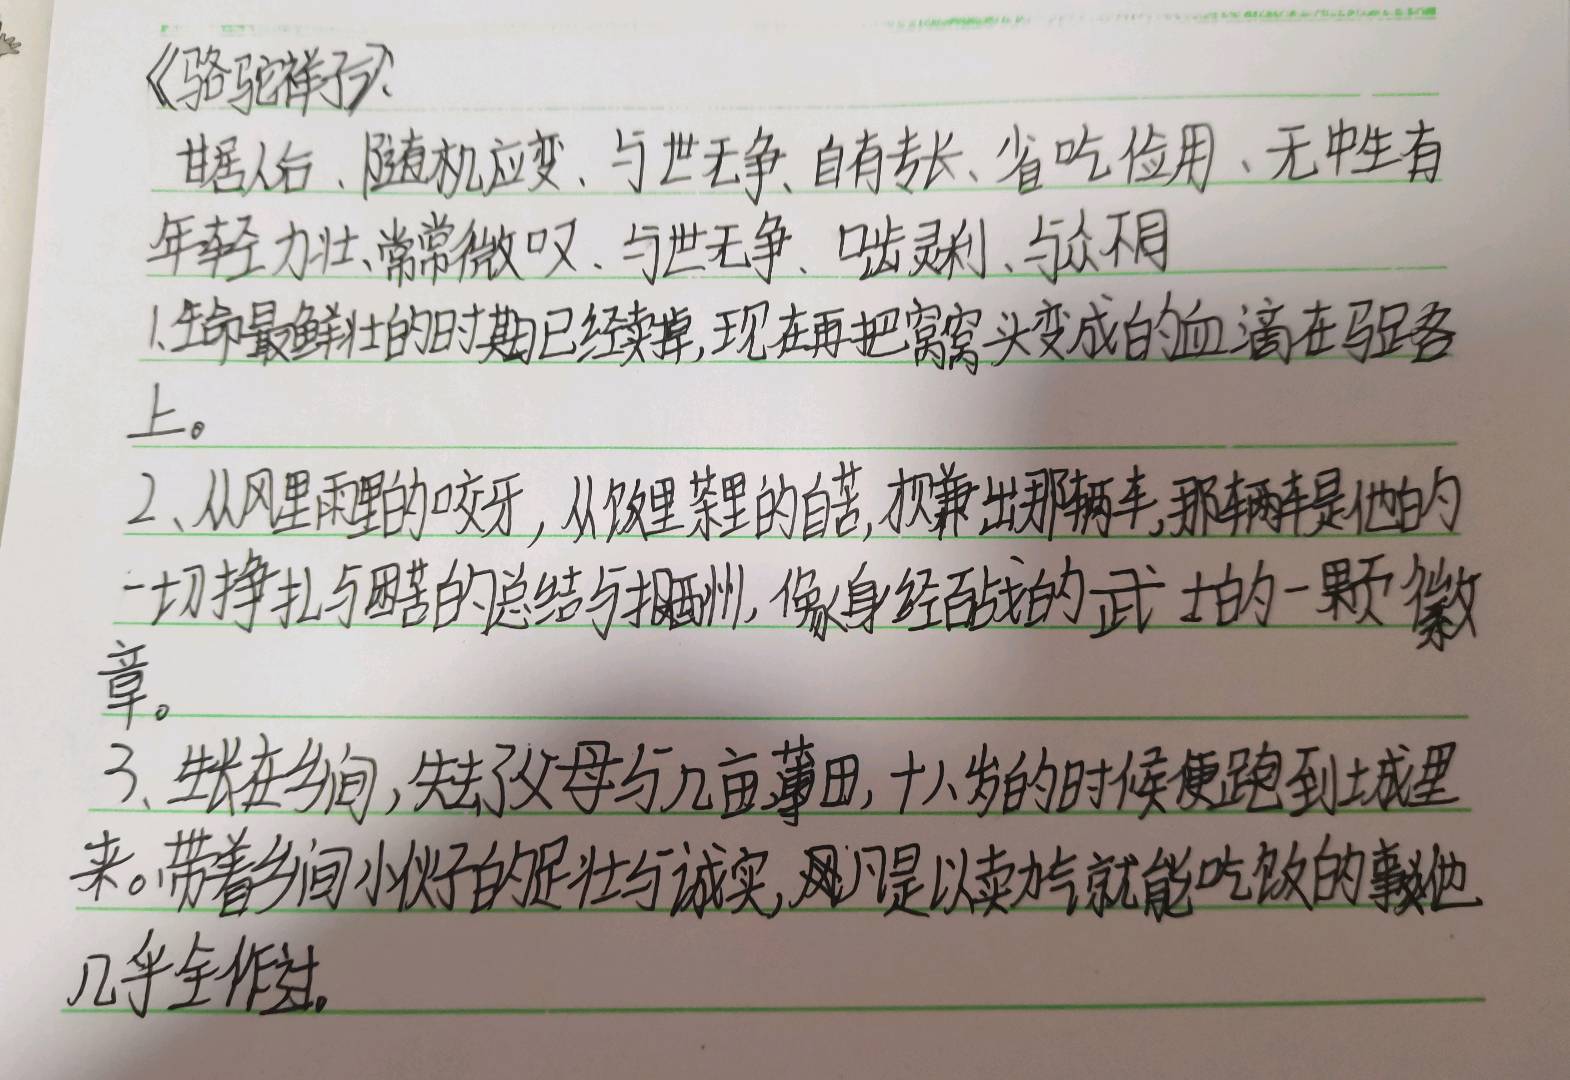 《骆驼祥子》:
甘居人后、随机应变、与世无争、自有专长、省吃俭用、无中生有
年轻力壮、常常微叹、与世无争、口齿灵利、与众不同
1.生命最鲜壮的时期已经卖掉,现在再把窝窝头变成的血滴在马路
上。
2、从风里雨里的咬牙,从饭里茶里的自苦,才赚出那辆车,那辆车是他的
一切挣扎与困苦的总结与报酬,像身经百战的武士的一颗徽
章。
3、生长在乡间,失去了父母与几亩薄田,十八岁的时候便跑到城里
来。带着乡间小伙子的足壮与诚实,凡是以卖力气就能吃饭的事他
几乎全作过。